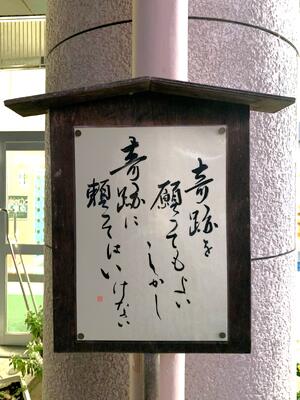 奇跡を
願ってもよい
しかし
奇跡に
頼ってはいけない